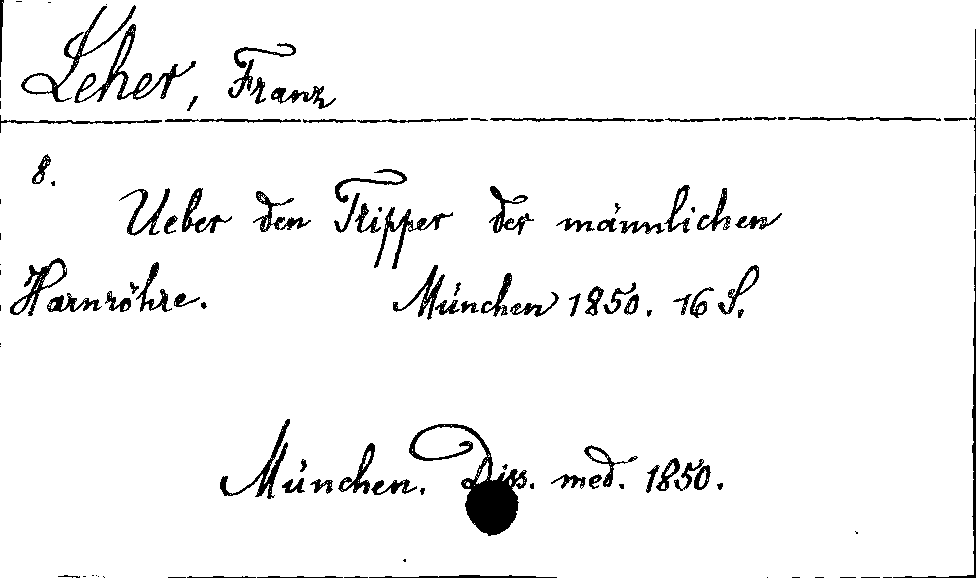 Leher, Franz
8.
Ueber den Tripper der männlichen
Harnröhre. München 1850. 16 S.
München. Diss. med. 1850.